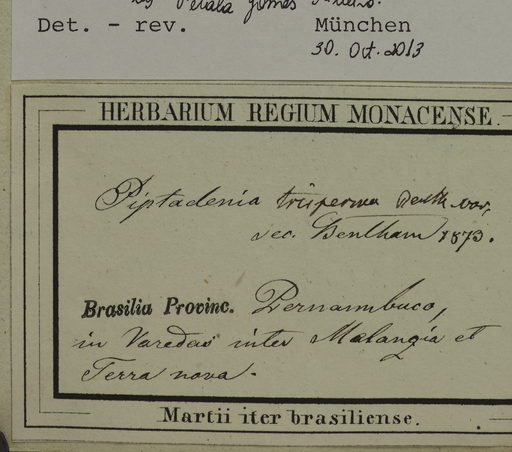 by Petala Gomes
Det. - rev. München
30. Oct. 2013
HERBARIUM REGIUM MONACENSE.
Piptadenia trisperma Benth. var.
sec. Bentham 1873.
Brasilia Provinc. Pernambuco,
in Varedas inter Malangia et
Terra nova.
Martii iter brasiliense.